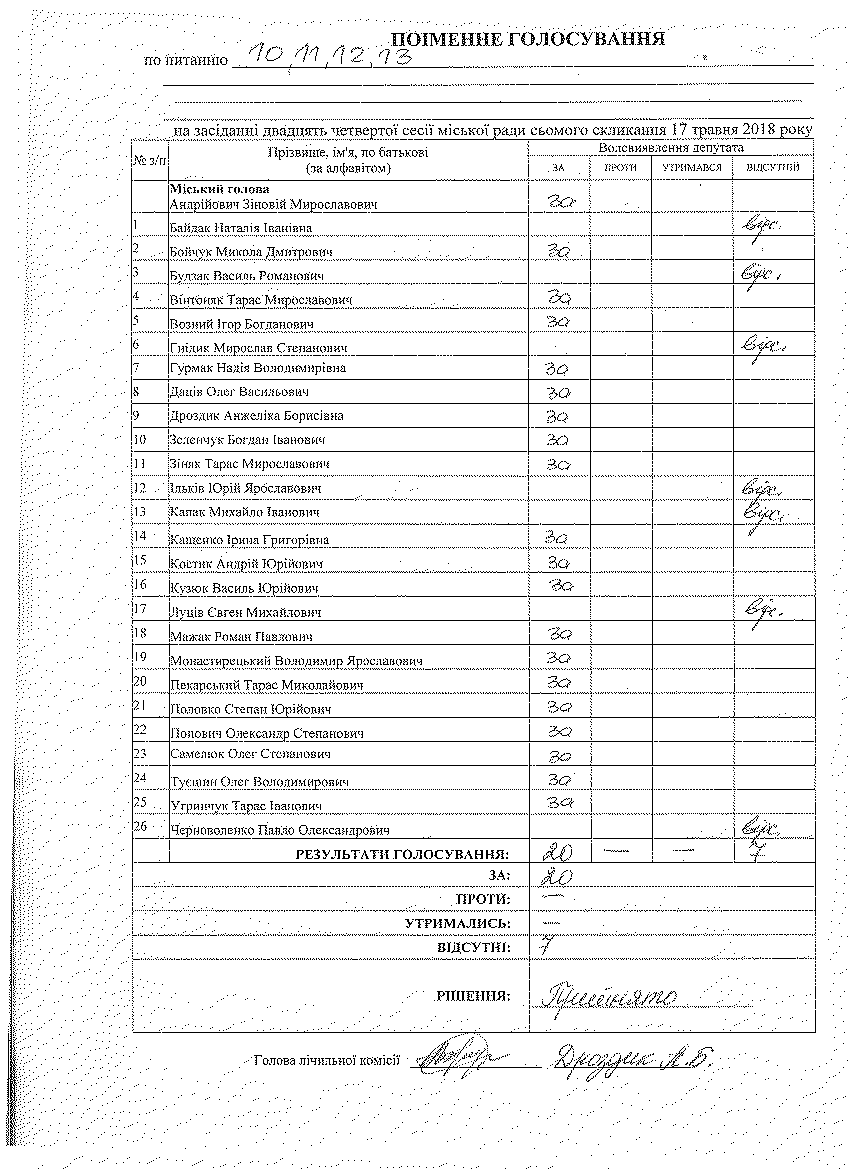 ПОІМЕННЕ ГОЛОСУВАННЯ
по питанню 10,11,12,13
на засіданні двадцять четвертої сесії міської ради сьомого скликання 17 травня 2018 року
№ з/п Прізвище, ім'я, по батькові (за алфавітом) Волевиявлення депутата
ЗА ПРОТИ УТРИМАВСЯ ВІДСУТНІЙ
Міський голова
Андрійович Зіновій Мирославович за
1 Байдак Наталія Іванівна відс.
2 Бойчук Микола Дмитрович за
3 Будзак Василь Романович відс.
4 Вінтоняк Тарас Мирославович за
5 Возний Ігор Богданович за
6 Гнідик Мирослав Степанович відс.
7 Гурмак Надія Володимирівна за
8 Даців Олег Васильович за
9 Дроздик Анжеліка Борисівна за
10 Зеленчук Богдан Іванович за
11 Зіняк Тарас Мирославович за
12 Ільків Юрій Ярославович відс.
13 Капак Михайло Іванович відс.
14 Кащенко Ірина Григорівна за
15 Костик Андрій Юрійович за
16 Кузюк Василь Юрійович за
17 Луців Євген Михайлович відс.
18 Мажак Роман Павлович за
19 Монастирецький Володимир Ярославович за
20 Пекарський Тарас Миколайович за
21 Половко Степан Юрійович за
22 Попович Олександр Степанович за
23 Самелюк Олег Степанович за
24 Туєшин Олег Володимирович за
25 Угринчук Тарас Іванович за
26 Черноволенко Павло Олександрович відс.
РЕЗУЛЬТАТИ ГОЛОСУВАННЯ: 20 — — 7
ЗА: 20
ПРОТИ: —
УТРИМАЛИСЬ: —
ВІДСУТНІ: 7
РІШЕННЯ: Прийнято
Голова лічильної комісії Дроздик А.Б.